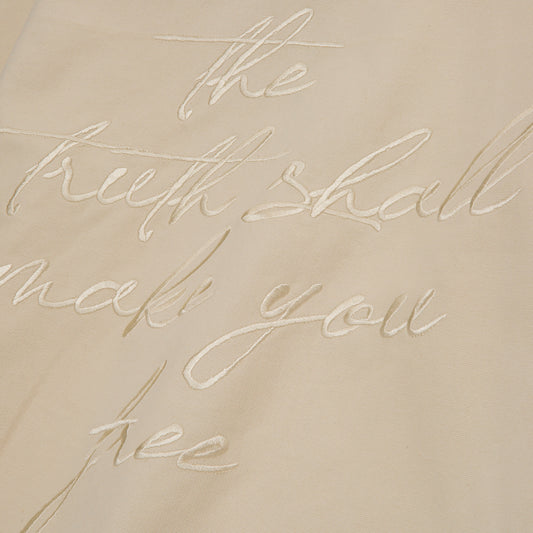 the
truth shall
make you
free